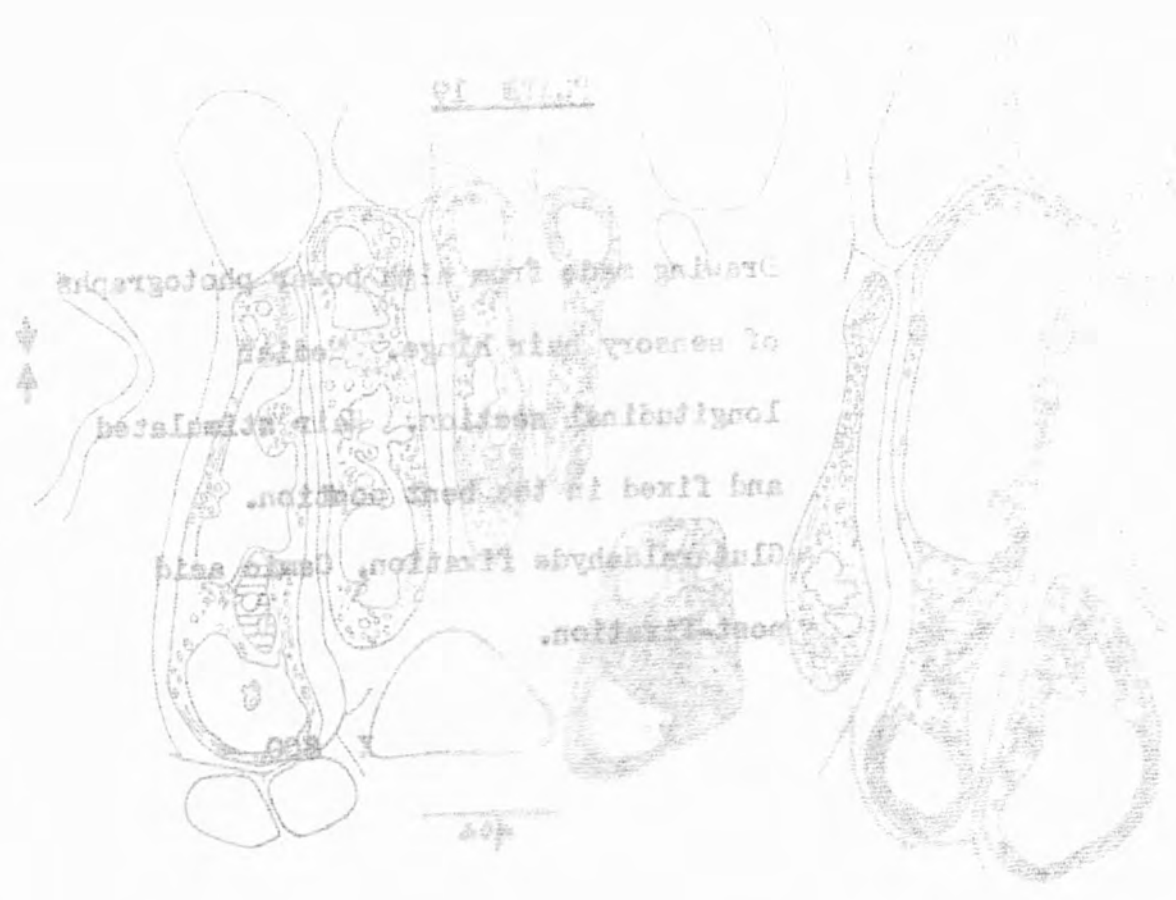 PLATE 19
Drawing made from high power photographs
of sensory hair hinge. Median
longitudinal section. Hair stimulated
and fixed in the bent position.
Glutaraldehyde fixation, Osmic acid
post-fixation.
X